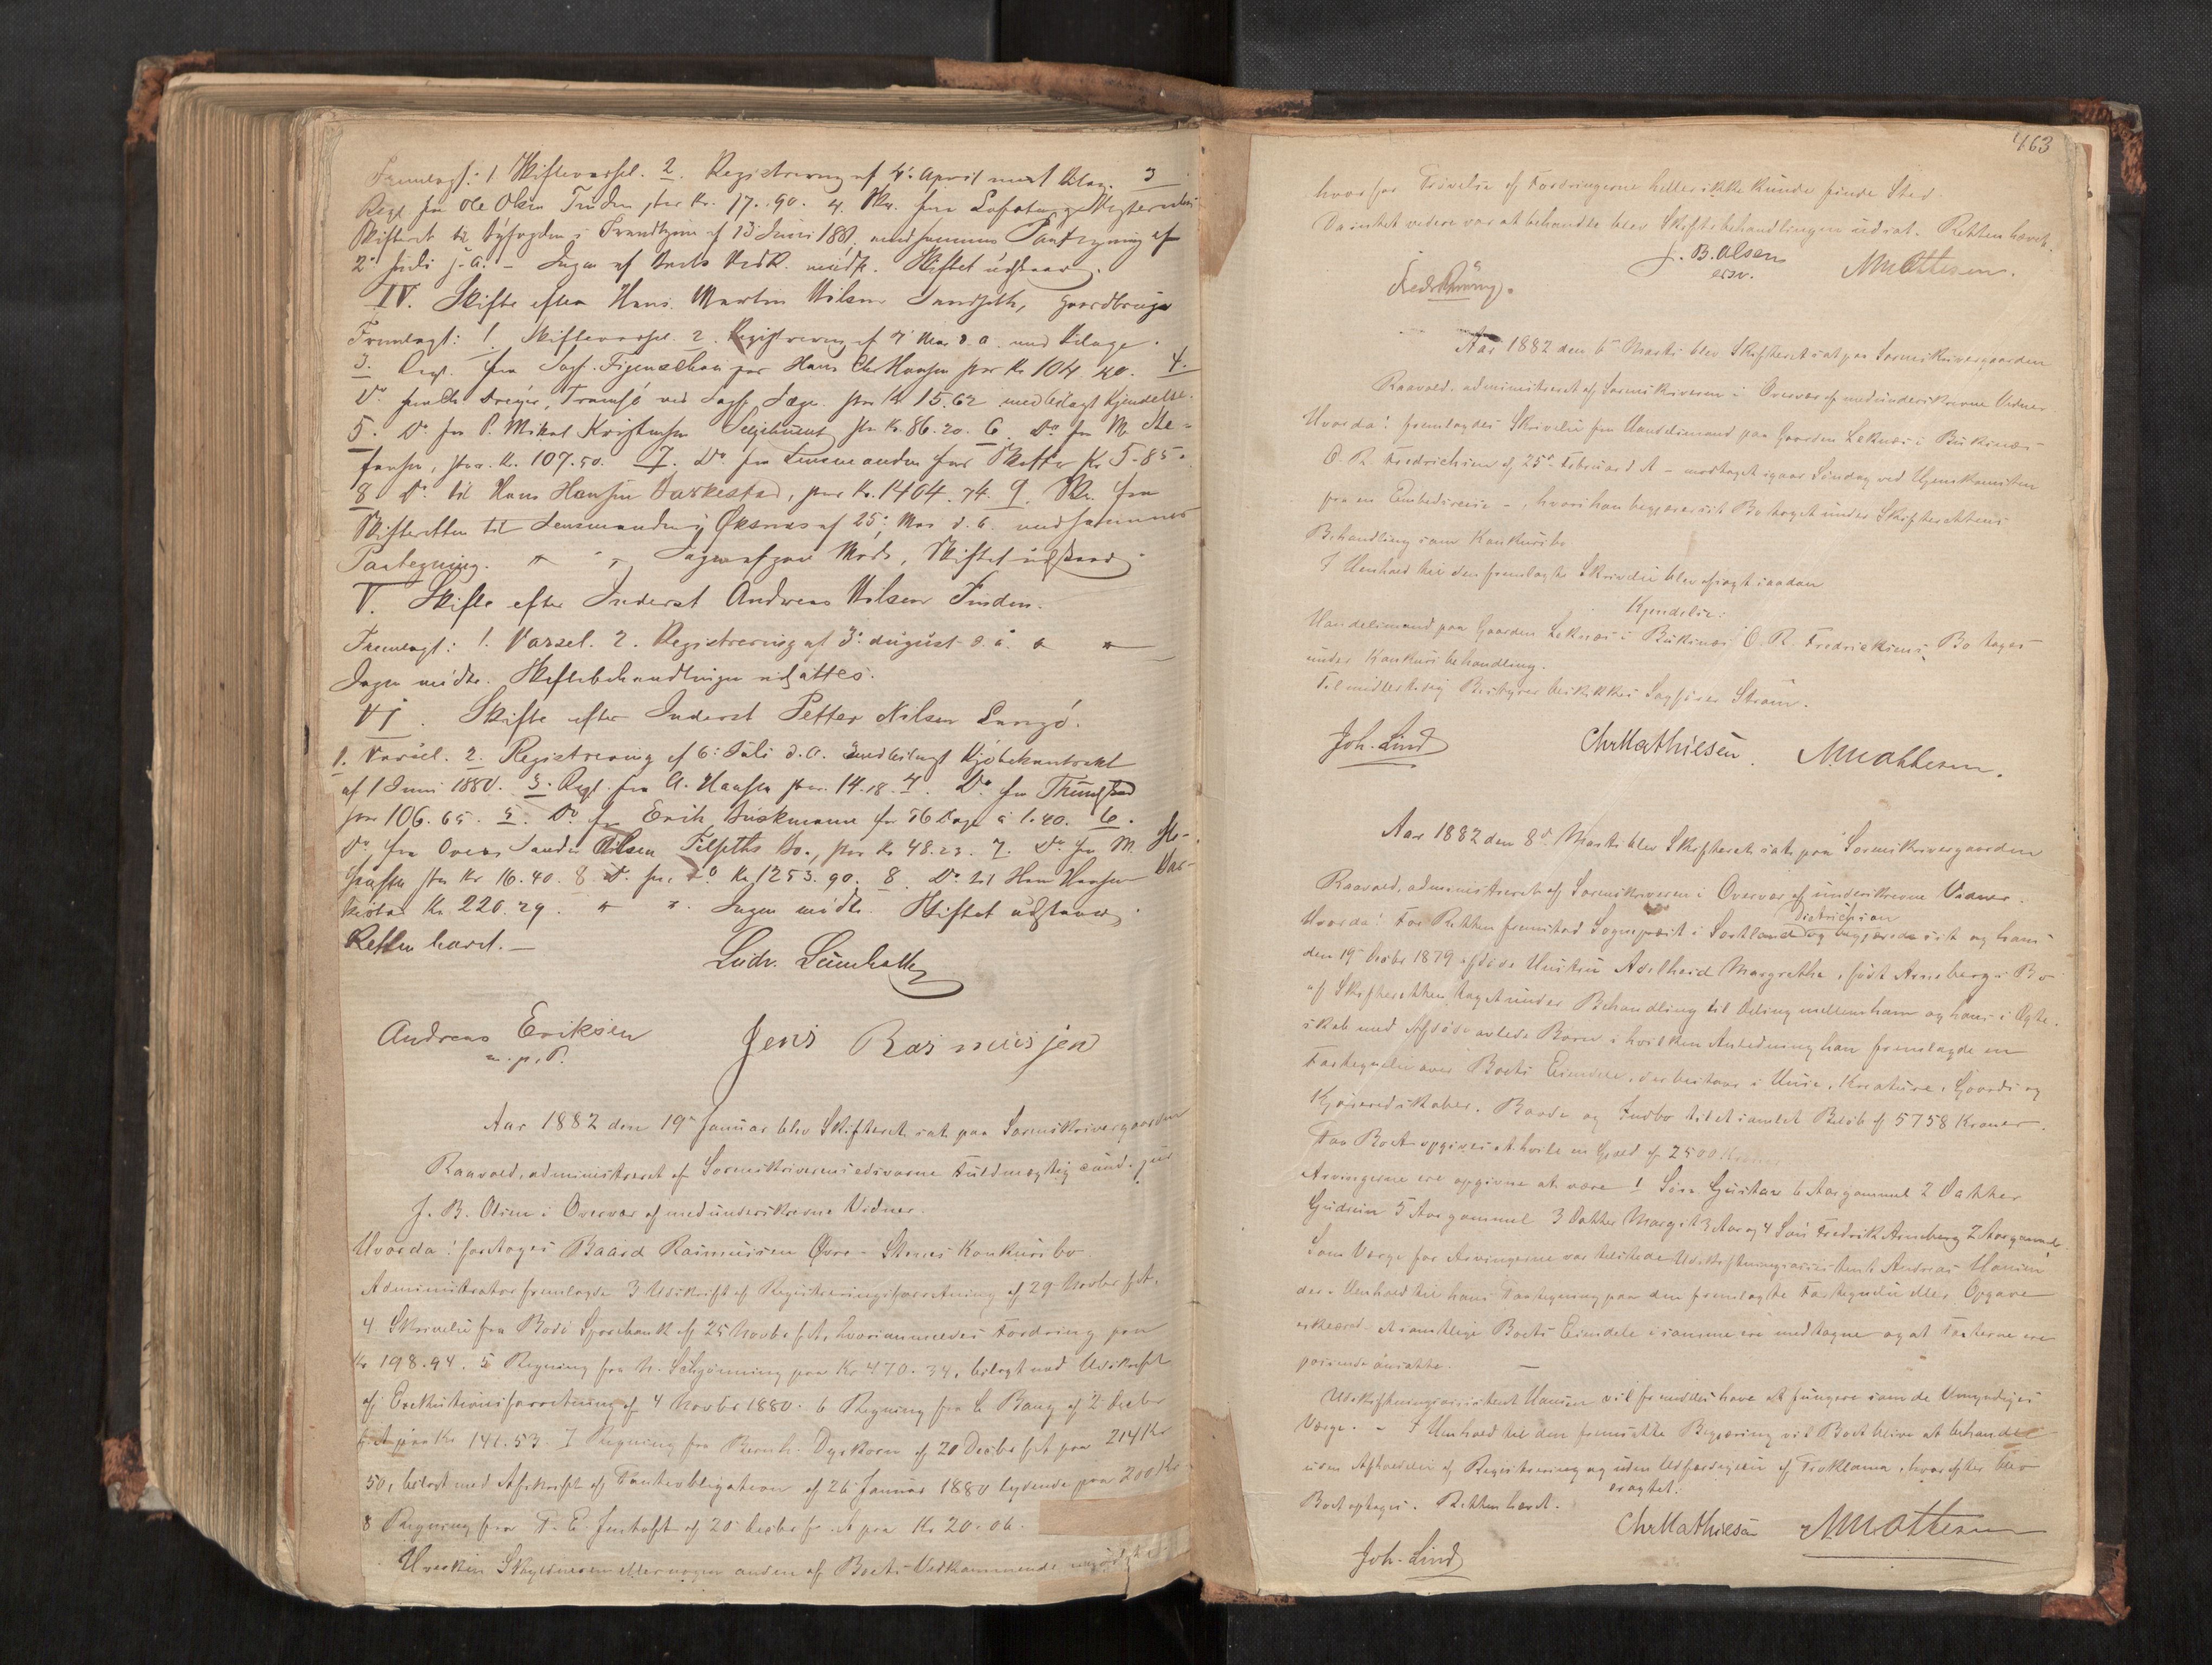 Fremlagt: 1 Skiftevarsel. 2. Registrering af 4. April med Bilag. 3
Regn fra Ole Olsen Tinden stor Kr. 17.90. 4. Skr. fra
Skifteret til Byfogden i Trondhjem af 13 Juni 1881, med sammes Paategning af
2. Juli s. A. - Ingen af Boets Vedk. mødte. Skiftet udstaar.
IV. Skifte efter Hans Martin Nilsen Sandseth, Gaardbruger
Fremlagt: 1. Skiftevarsel. 2. Registrering af 7 Mai d. A. med Bilage.
3. Regn. fra Sagf. Figenschou for Hans Chr Hansen stor Kr 104.40. 4.
Do fra Dreyer, Tromsø ved Sagf. stor Kr 15.62 med bilagt Kjendelse.
5. Do fra P. Mikal Kristensen stor Kr. 86.20. 6. Do fra M. Ste-
fensen, stor Kr. 107.50. 7. Do fra Lensmanden for Skatter Kr 5.85.
8 Do til Hans Hansen Barkestad, stor Kr. 1404.74. 9. Skr. fra
Skifteretten til Lensmanden i Øksnes af 25. Mai d. A. med sammes
Paategning. Ingen mødte, Skiftet udstaar.
V. Skifte efter Inderst Andreas Nilsen Tinden.
Fremlagt: 1. Varsel. 2. Registrering af 3. August d. A.
Ingen mødte. Skiftebehandlingen udsattes.
VI. Skifte efter Inderst Petter Nilsen Langø.
1. Varsel. 2. Registrering af 6. Juli d. A. med bilagt Kjøbekontrakt
af 1 Juni 1880. 3. Regn. fra A. Hansen stor 14.18. 4. Do fra
stor 106.65. 5. Do fra Erik for 56 Dage a 1.40. 6.
Do fra Ovens Sander Olsen Bo, stor Kr 48.23. 7. Do fra M. Ste-
fensen stor Kr 16.40. 8 Do fra Do Kr 1253.90. 8. Do til Hans Hansen Bar-
kestad Kr. 220.29. Ingen mødte. Skiftet udstaar.
Retten hævet. -
Ludv. Lumholtz
Andreas Eriksen
m. p. P.
Jens Rasmussen
Aar 1882 den 19de Januar blev Skifteret sat paa Sorenskrivergaarden
Raavold, administreret af Sorenskriverens edsvorne Fuldmægtig cand. jur
J. B. Olsen i Overvær af medunderskrevne Vidner.
Hvorda: foretoges Baard Rasmussen Øvre-Stenes Konkursbo.
Administrator fremlagde 3 Udskrift af Registreringsforretning af 29 Novbr f. A.
4 Skrivelse fra Bodø Sparebank af 25 Novbr f. A., hvori anmeldes Fordring paa
Kr 198.94. 5 Regning fra N. Schjønning paa Kr 470.34, bilagt med Udskrift
af Exekutionsforretning af 4 Novbr 1880. 6 Regning fra C Bang af 2 Decbr
f. A. paa Kr 141.53. 7 Regning fra Bernh. Dyrkoren af 20 Decbr f. A. paa 214 Kr
50, bilagt med Afskrift af Panteobligation af 26 Januar 1880 lydende paa 200 Kr
8 Regning fra af 20 Decbr f. A. paa Kr 20.06.
Hverken Skyldneren eller nogen anden af Boets Vedkommende mødte
463
hvorfor Prøvelse af Fordringerne heller ikke kunde finde Sted.
Da intet videre var at behandle blev Skiftebehandlingen udsat. Retten hævet.
J. B. Olsen
edsv.
M Mathiesen.
Aar 1882 den 6 Marts blev Skifteret sat paa Sorenskrivergaarden
Raavold, administreret af Sorenskriveren i Overvær af medunderskrevne Vidner.
Hvorda: fremlagdes Skrivelse fra Handelsmand paa Gaarden Leknes i Buksnes
O. R. Fredriksen af 25de Februar d A - modtaget igaar Søndag ved Hjemkomsten
fra en Embedsreise -, hvori han begjærer sit Bo taget under Skifterettens
Behandling som Konkursbo.
I Henhold til den fremlagte Skrivelse blev afsagt saadan
Kjendelse:
Handelsmand paa Gaarden Leknes i Buksnes O. R. Fredriksens Bo tages
under Konkursbehandling.
Til midlertidig Bestyrer beskikkes Sagfører Strøm.
Joh. Lind
Chr Mathiesen. M Mathiesen.
Aar 1882 den 8de Marts blev Skifteret sat paa Sorenskrivergaarden
Raavold, administreret af Sorenskriveren i Overvær af underskrevne Vidner.
Hvorda: For Retten fremstod Sognepræst i Sortland og begjærede sit og hans
den 19 Decbr 1879 afdøde Hustru Adelheid Margrethe, født Arneberg's Bo
af Skifteretten taget under Behandling til Deling mellem ham og hans i Ægte-
skab med Afdøde avlede Børn i hvilken Anledning han fremlagde en
Fortegnelse over Boets Eiendele, der bestaar i Huse, Kreature, Gaards og
Kjøreredskaber, Baade og Indbo til et samlet Beløb af 5758 Kroner.
Paa Boet opgives at hvile en Gjæld af 2500 Kroner
Arvingerne ere opgivne at være 1 Søn Gustav 6 Aar gammel 2 Datter
Gudrun 5 Aar gammel 3 Datter Margit 3 Aar og 4 Søn Fredrik Arneberg 2 Aar gammel.
Som Værge for Arvingerne var tilstede Udskiftningsassistent Andreas Hansen
der i Henhold til hans Paategning paa den fremlagte Fortegnelse eller Opgave
erklæred at samtlige Boets Eiendele i samme ere medtagne og at Taxterne ere
passende ansatte. -
Udskiftningsassistent Hansen vil fremdeles have at fungere som de Umyndiges
Værge. - I Henhold til den fremsatte Begjæring vil Boet blive at behandle
uden Afholdelse af Registrering og uden Udfærdigelse af Proklama, hvorefter blev
eragtet:
Boet optages. Retten hævet.
Chr Mathiesen M Mathiesen
Joh. Lind